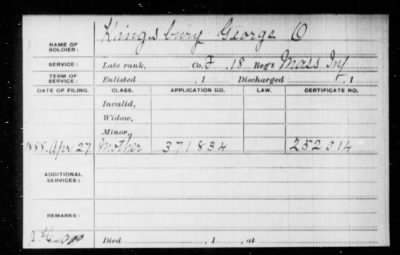 Kingsbury George O
NAME OF SOLDIER:
SERVICE: Late rank, Co. F, 18 Reg't Mass Inf
TERM OF SERVICE: Enlisted , 1 Discharged , 1
DATE OF FILING. CLASS. APPLICATION NO. LAW. CERTIFICATE NO.
Invalid,
Widow,
Minor,
1888 Apr 27 Mother 371834 252014
ADDITIONAL SERVICES:
REMARKS:
Died , 1 , at